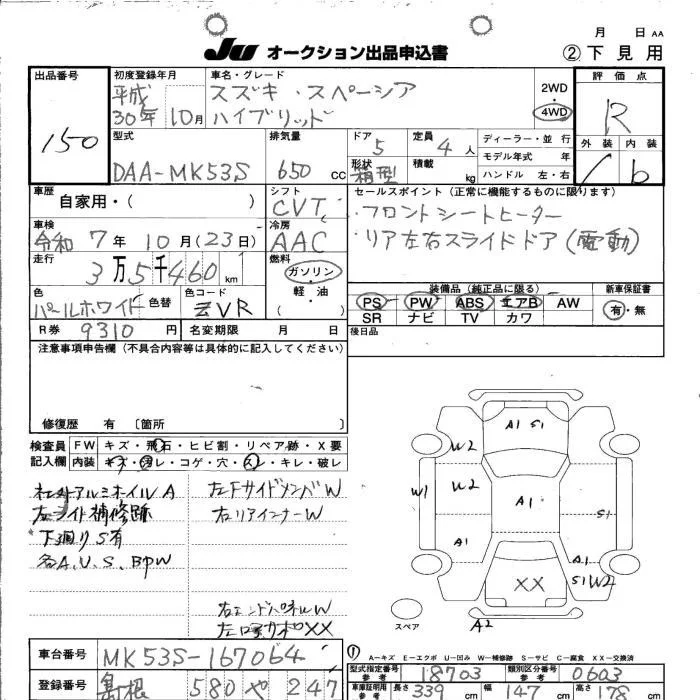 月 日 AA
JU オークション出品申込書 ② 下見用
出品番号 150
初度登録年月 平成30年10月
車名・グレード スズキ・スペーシア ハイブリッド
2WD 4WD
評価点 R
外装 内装 b
型式 DAA-MK53S
排気量 650 CC
ドア 5
形状 箱型
定員 4人
積載 kg
ディーラー・並行
モデル年式 年
ハンドル 左・右
車歴 自家用・( )
シフト CVT
セールスポイント (正常に機能するものに限ります)
・フロントシートヒーター
・リア左右スライドドア(電動)
車検 令和 7年 10月(23日)
冷房 AAC
走行 3万5千460km
燃料 ガソリン・軽油 ( )
装備品 (純正品に限る)
PS PW ABS エアB AW
SR ナビ TV カワ
新車保証書 有・無
色 パールホワイト 色替
色コード ZVR
R券 9310円 名変期限 月 日
後日品
注意事項申告欄 (不具合内容等は具体的に記入してください)
修復歴 有 〔箇所 〕
検査員記入欄
FW キズ・飛石・ヒビ割・リペア跡・X要
内装 キズ・汚レ・コゲ・穴・スレ・キレ・破レ
社外アルミホイルA
左ライト補修跡
下廻りS有
各A.U.S.BPW
左FサイドメンバW
左リアインナーW
右エンドパネルW
A1 S1
W2
W1
W2
A1
S1
A1
A1
S1 W2
XX
A2
スペア
A-キズ E-エクボ U-凹み W-補修跡 S-サビ C-腐食 XX-交換済
車台番号 MK53S-167064
登録番号 島根 580 や 247
型式指定番号 参考 18703
類別区分番号 参考 0603
車庫証明用 参考 長さ 339 cm 幅 147 cm 高さ 178 cm